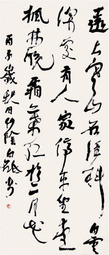 遠上寒山石徑斜白雲
深處有人家停車坐愛
楓林晚霜葉紅於二月花
歲秋月書